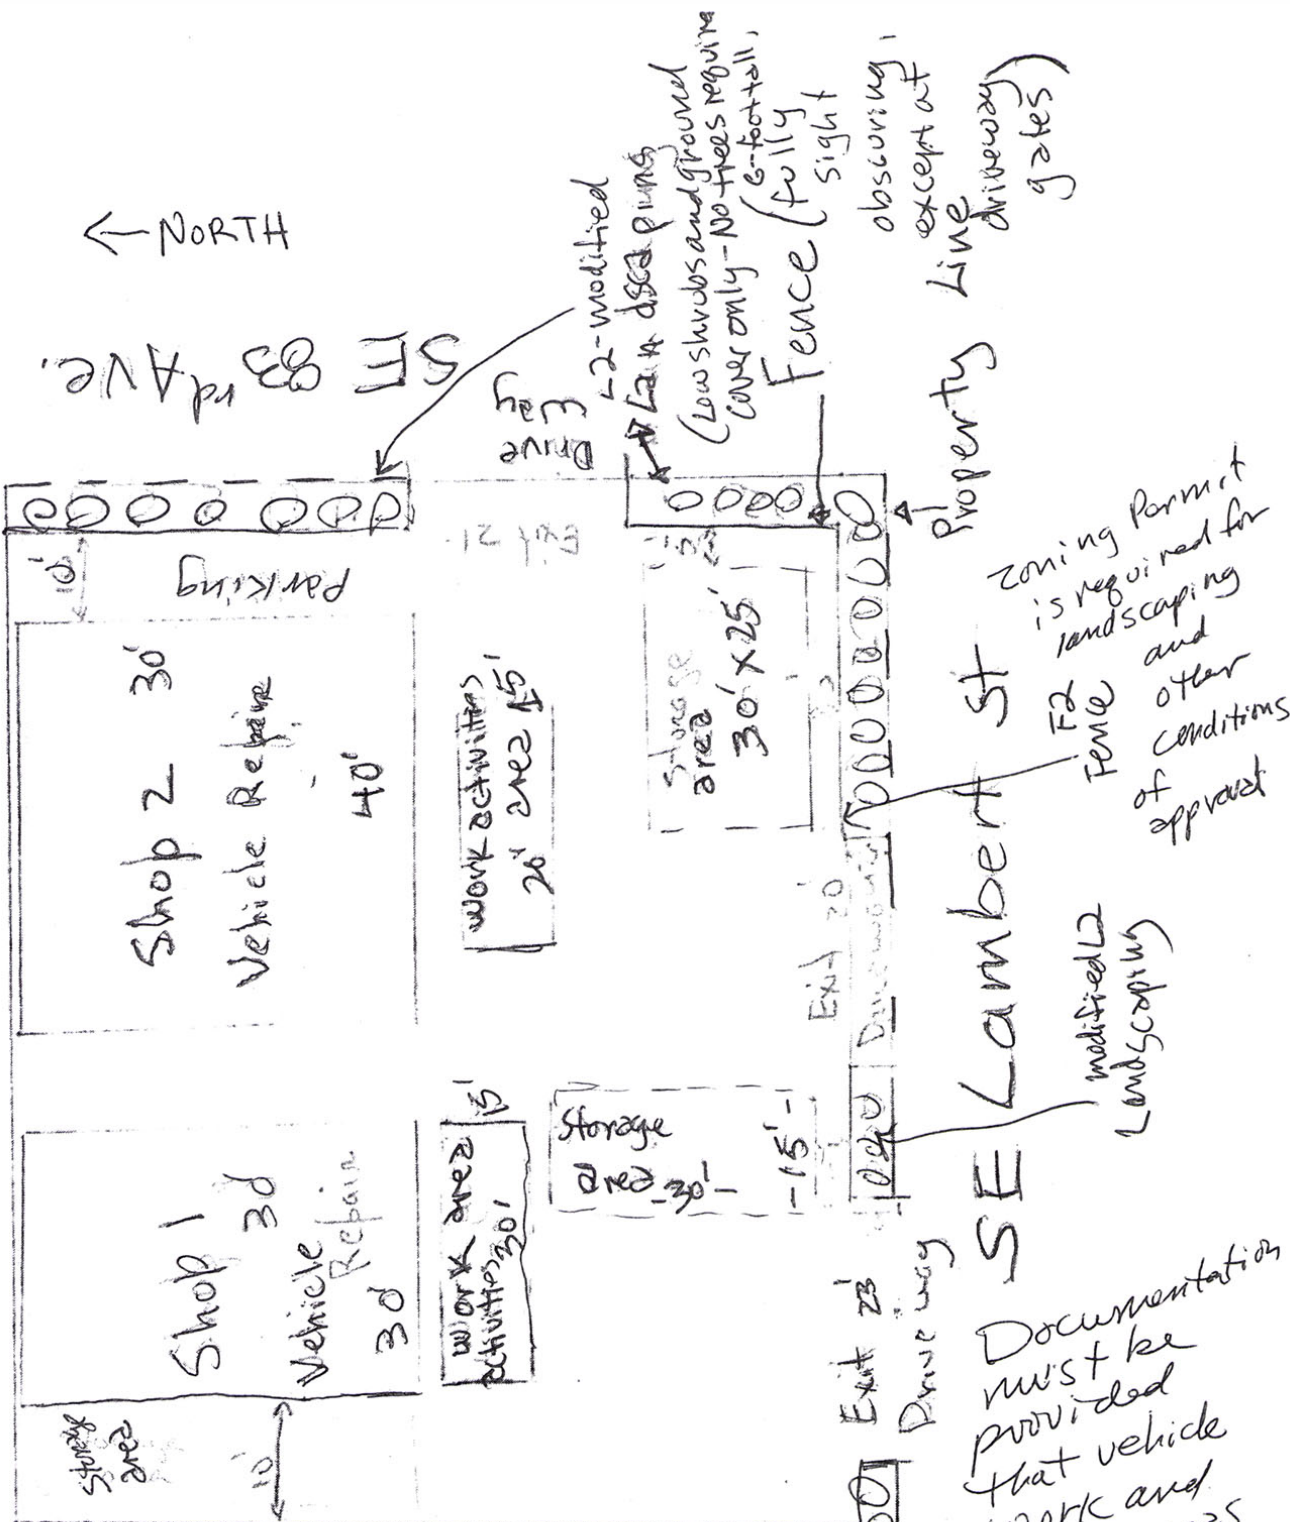 ← NORTH
SE 83rd AVE.
L2-modified
Landscaping
(Low shrubs and ground
cover only - No trees require
Fence (6-foot tall,
fully
sight
obscuring,
except at
driveway
gates)
Property Line
Drive
way
Exit 21'
10'
Parking
Shop 2 30'
Vehicle Repair
40'
work activities
20' area 15'
Storage
area
30' x 25'
Zoning Permit
is required for
landscaping
and
other
conditions
of
approval
F2
Fence
SE Lambert St
Exit 20'
Driveway
modified L2
Landscaping
Shop 1
30'
Vehicle
Repair
30'
work area 15'
activities 30'
Storage
area -30'-
-15'-
Storage
area
10'
Exit 23'
Drive way
Documentation
must be
provided
that vehicle
work and